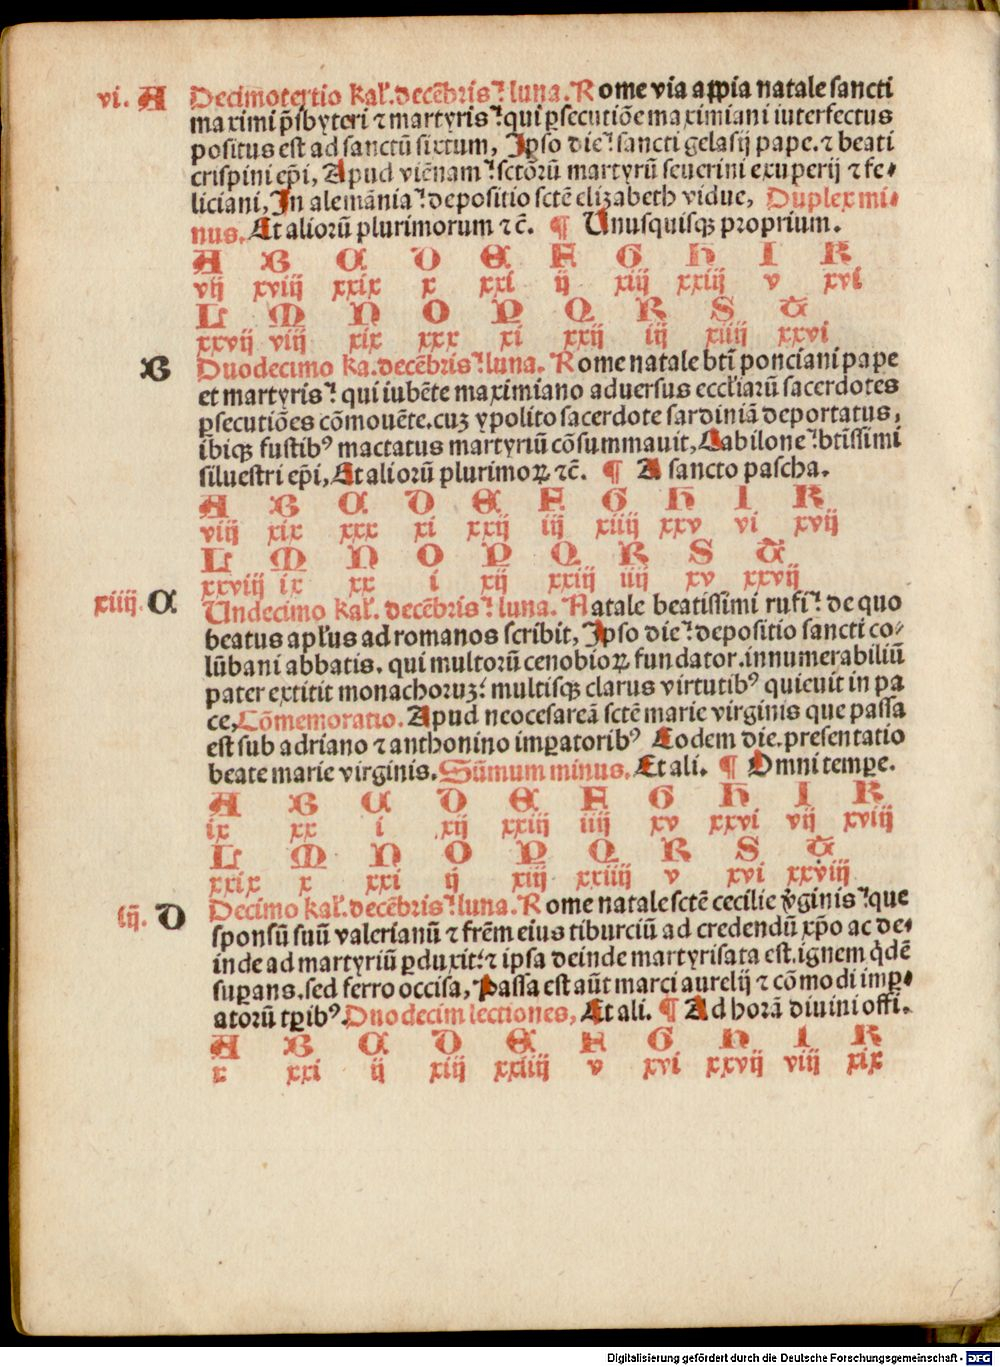 vi. A Decimotertio kał. decēbris⹎ luna. Rome via appia natale sancti
maximi p̄sbyteri ⁊ martyris⹎ qui ꝑsecutiōe maximiani iuterfectus
positus est ad sanctū sixtum, Ipso die⹎ sancti gelasij pape. ⁊ beati
crispini ep̄i, Apud viēnam⹎ sctōrū martyrū seuerini exuperij ⁊ fe⸗
liciani, In alemānia⹎ depositio sctē elizabeth vidue, Duplex mi⸗
nus. Et aliorū plurimorum ⁊ c̄. ¶ Unusquisqꝫ proprium.
A B C D E F G H I K
vij xviij xxix x xxi ij xiij xxiiij v xvi
L M N O P Q R S T
xxvij viij xix xxx xi xxij iij xiiij xxvi
B Duodecimo ka. decēbris⹎ luna. Rome natale btī ponciani pape
et martyris⹎ qui iubēte maximiano aduersus eccłiarū sacerdotes
ꝑsecutiōes cōmouēte. cuꝫ ypolito sacerdote sardiniā deportatus,
ibiqꝫ fustibꝰ mactatus martyriū cōsummauit, Cabilone⹎ btīssimi
siluestri ep̄i, Et aliorū plurimoꝝ ⁊c̄. ¶ A sancto pascha.
A B C D E F G H I K
viij xix xxx xi xxij iij xiiij xxv vi xvij
L M N O P Q R S T
xxviij ix xx i xij xxiij iiij xv xxvij
xiiij. C Undecimo kał. decēbris⹎ luna. Natale beatissimi rufi⹎ de quo
beatus apłus ad romanos scribit, Ipso die⹎ depositio sancti co⸗
lūbani abbatis. qui multorū cenobioꝝ fundator. innumerabiliū
pater extitit monachoruꝫ⹎ multisqꝫ clarus virtutibꝰ quieuit in pa
ce, Cōmemoratio. Apud neocesareā sctē marie virginis que passa
est sub adriano ⁊ anthonino imꝑatoribꝰ Eodem die. presentatio
beate marie virginis. Sūmum minus. Et ali. ¶ Omni temꝑe.
A B C D E F G H I K
ix xx i xij xxiij iiij xv xxvi vij xviij
L M N O P Q R S T
xxix x xxi ij xiij xxiiij v xvi xxviij
iij. D Decimo kał. decēbris⹎ luna. Rome natale sctē cecilie v̄ginis⹎ que
sponsū suū valerianū ⁊ frēm eius tiburciū ad credendū xp̄o ac de⸗
inde ad martyriū ꝑduxit⹎ ⁊ ipsa deinde martyrisata est. ignem q̇dē
suꝑans. sed ferro occisa, Passa est aūt marci aurelij ⁊ cōmodi imꝑ⸗
atorū tꝑibꝰ. Duodecim lectiones, Et ali. ¶ Ad horā diuini offi.
A B C D E F G H I K
x xxi ij xiij xxiiij v xvi xxvij viij xix
Digitalisierung gefördert durch die Deutsche Forschungsgemeinschaft - DFG